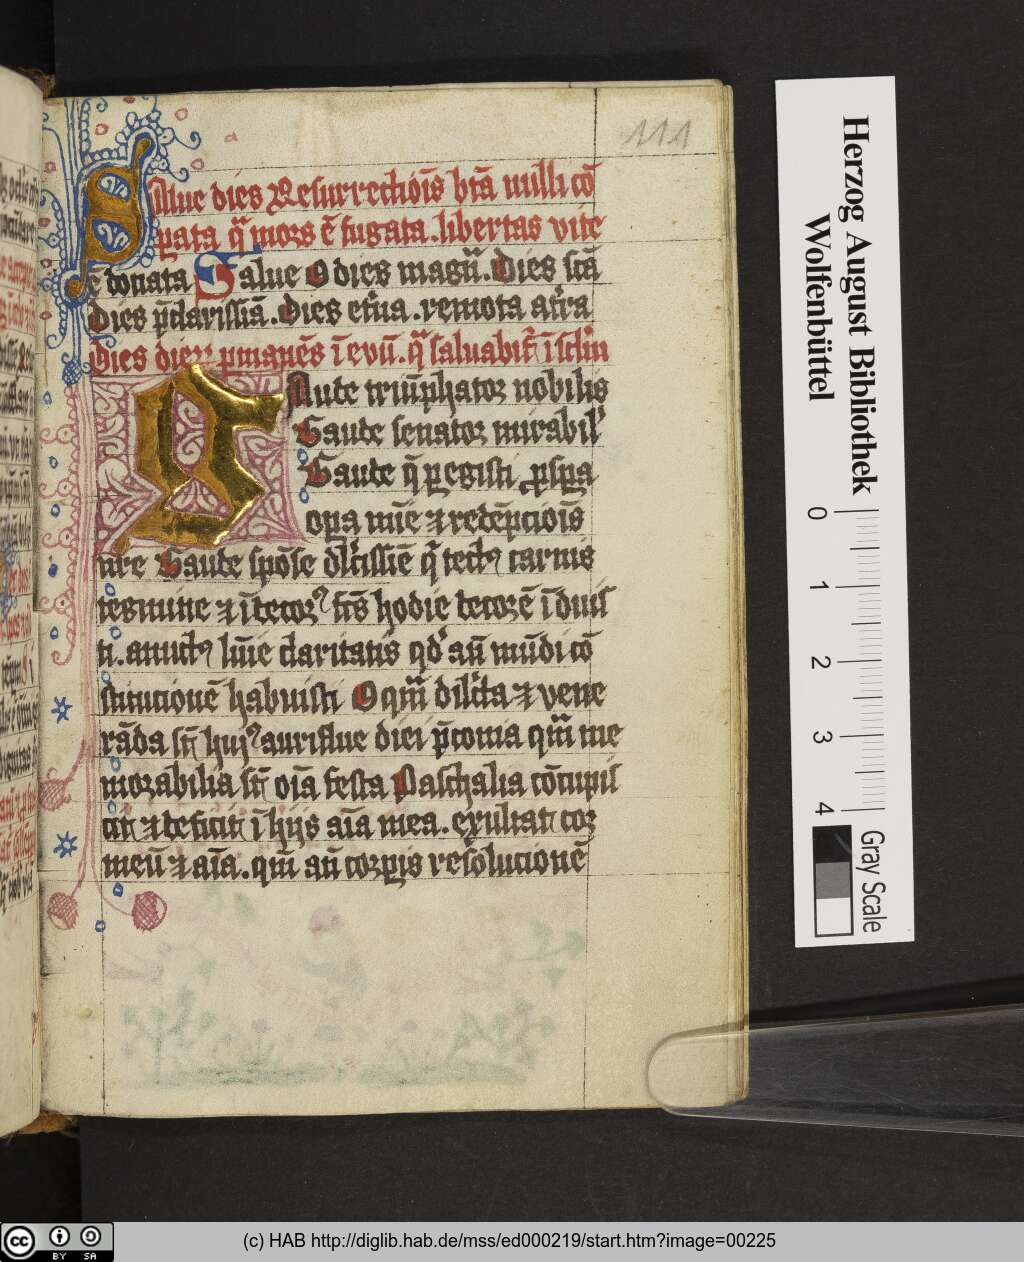 111
Salue dies Resurrectiōis btā nulli cō
pata q̄ mors ē fugata. libertas vite
ē donata Salue O dies magn̄. Dies sc̄ā
Dies p̄clarissiā. Dies et̄na. remota at̄ra
Dies dieꝝ ꝑmanēs ī evū. q̄ saluabit̄ ī
Aude triūphator nobilis
Gaude senator mirabil'
Gaude q̄ ꝑegisti ꝓsꝑa
oꝑa nr̄e ⁊ redēpciōis
nr̄e Gaude spōse dl'cissiē q̄ tectꝰ carnis
tegmine ⁊ hodie decorē ī diuis
ti. amictꝰ lūīe claritatis qd' an̄ mūdi cō
stitucionē habuisti O qm̄ dil'cta ⁊ vene
rāda sn̄t huiꝰ auriflue diei p̄conia qm̄ me
morabilia sn̄t oīa festa Paschalia cōcupis
cit ⁊ deficit ī hijs aīa mea. exultat cor
meū ⁊ aīa. qm̄ an̄ corꝑis resolucionē
Herzog August Bibliothek
Wolfenbüttel
0 1 2 3 4
Gray Scale
cc BY SA
(c) HAB http://diglib.hab.de/mss/ed000219/start.htm?image=00225